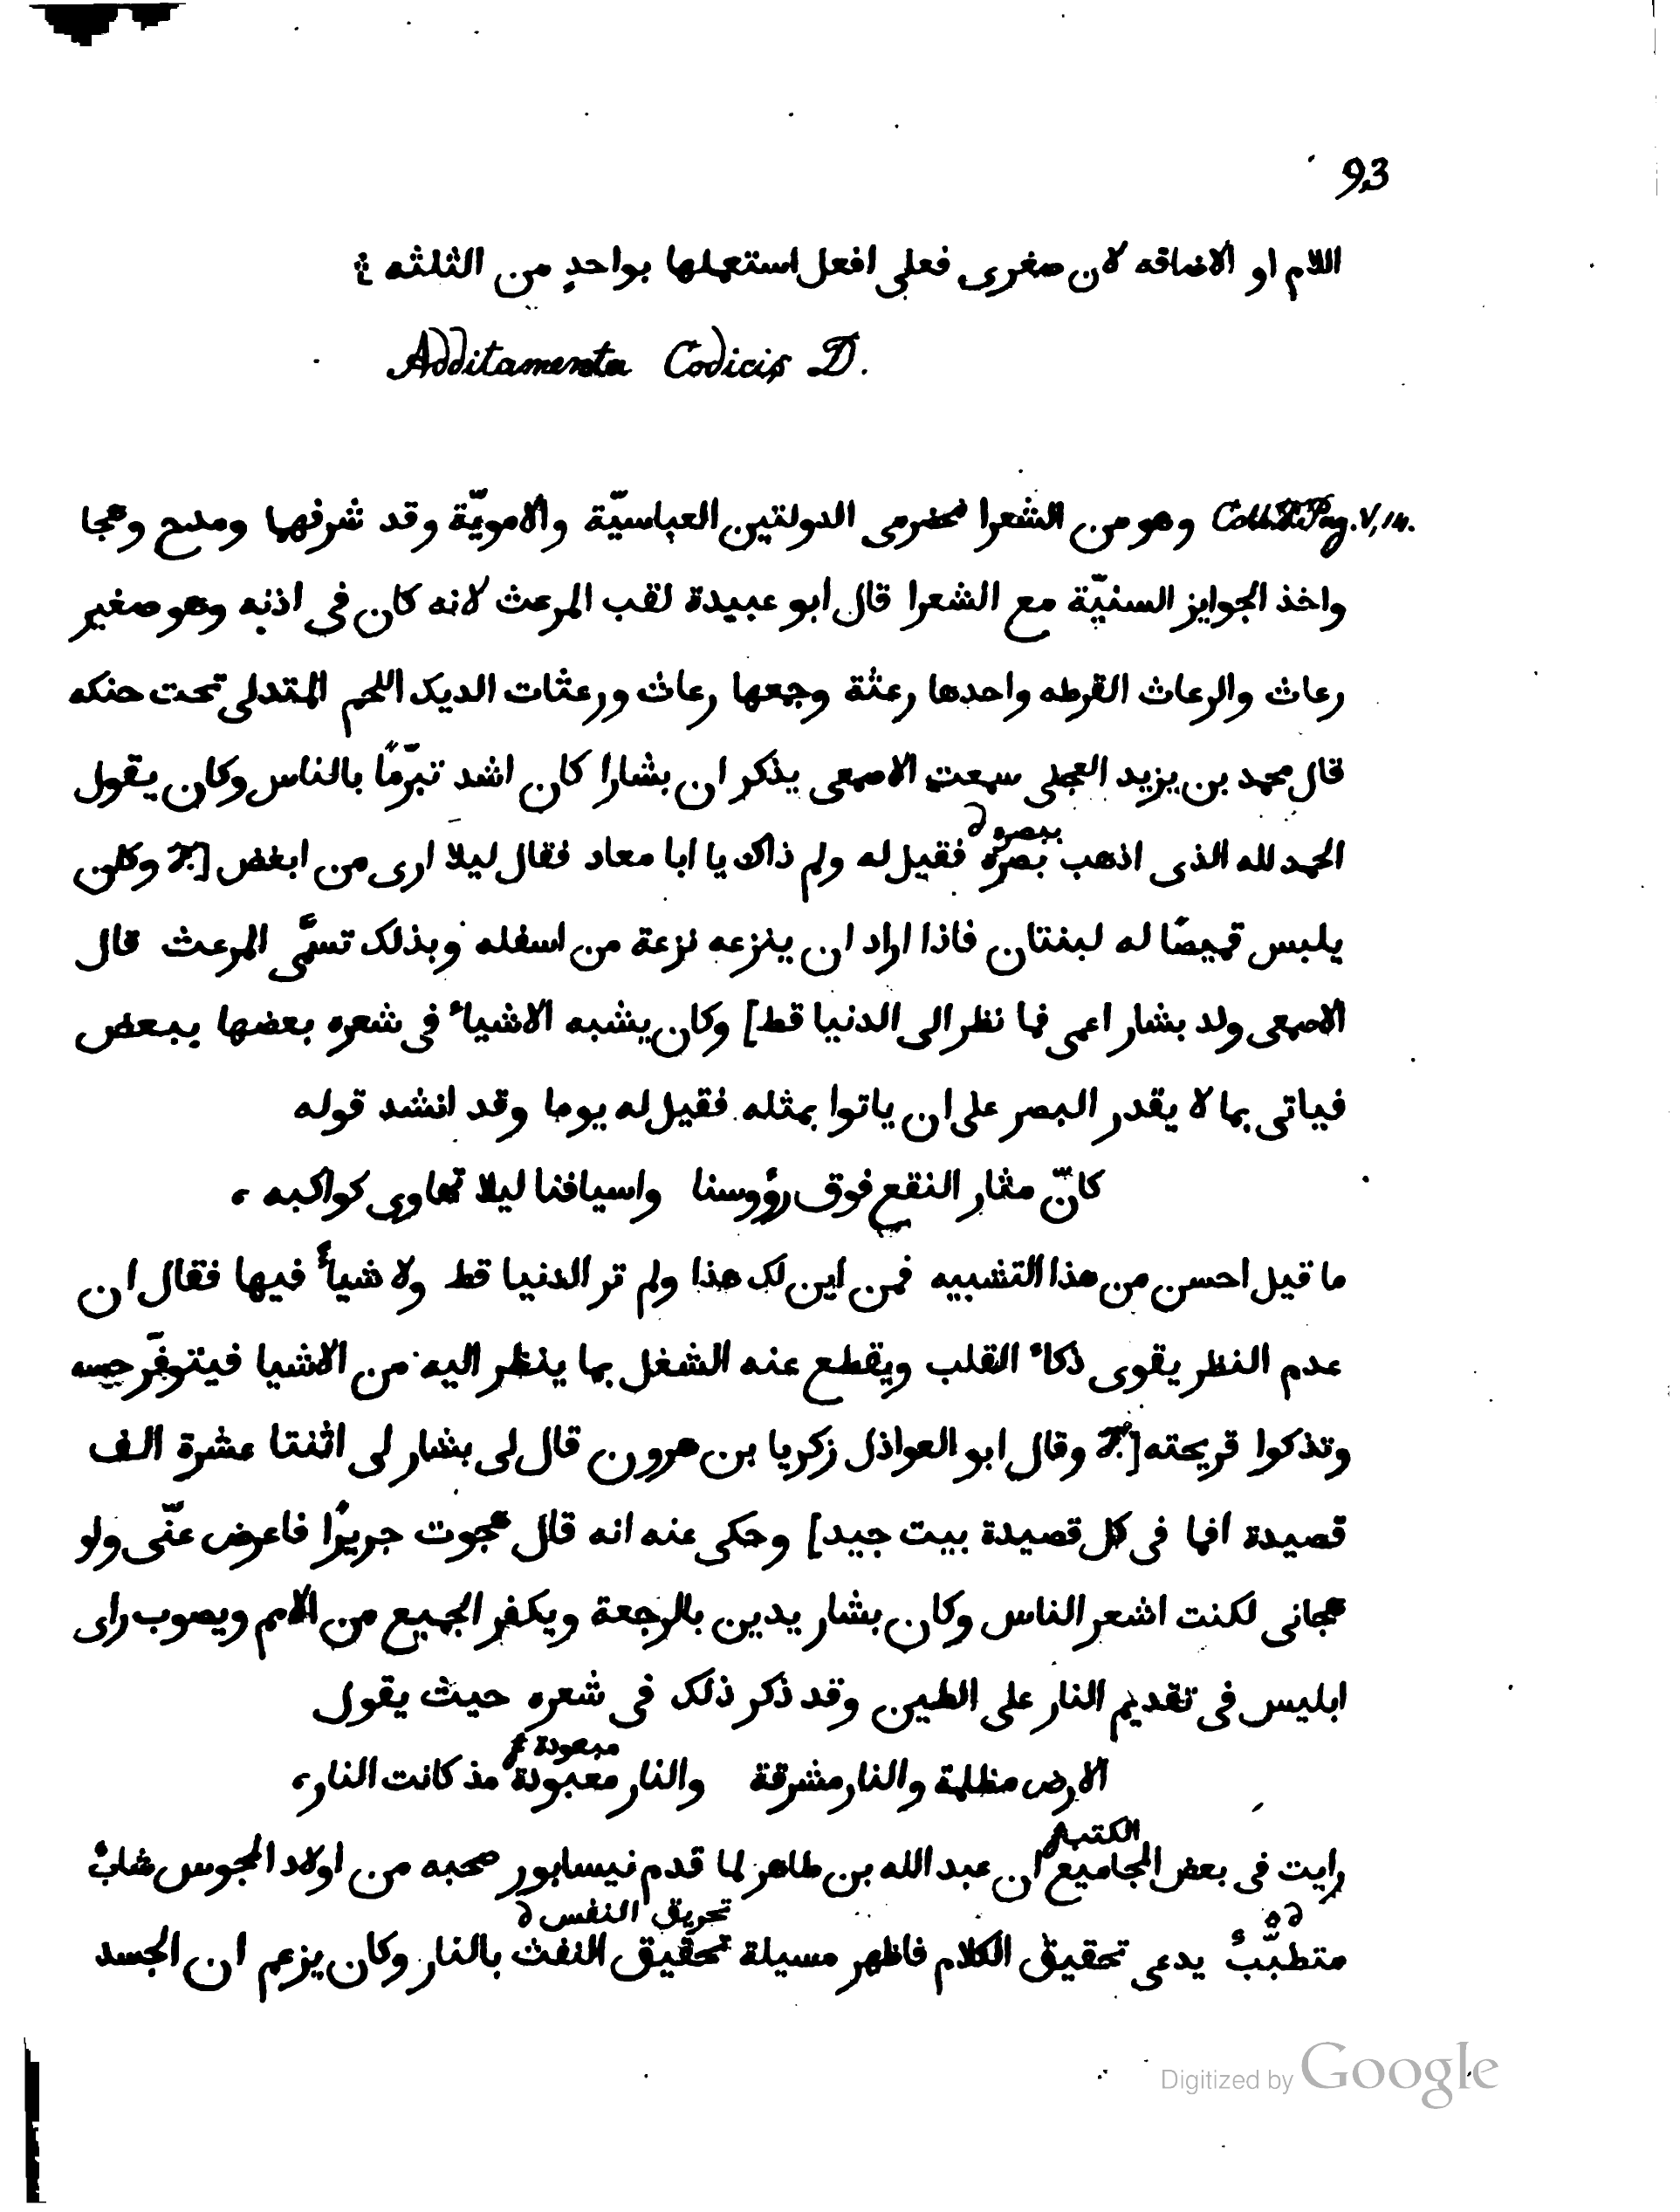 93
اللام او الاضافه لان صغرى فعلى افعل استعملها بواحدٍ من الثلثه
Additamenta Codicis D.
Pag. V, 14. وهو من الشعرا مخضرمى الدولتين العباسيّة والامويّة وقد شرفهما ومدح وهجا
واخذ الجوايز السنيّة مع الشعرا قال ابو عبيدة لقب المرعث لانه كان فى اذنه وهو صغير
رعاث والرعاث القرطه واحدها رعثة وجمعها رعاث ورعثات الديك اللحم المتدلى تحت حنكه
قال محمد بن يزيد العجلى سمعت الاصمعى يذكر ان بشارا كان اشد تبرّمًا بالناس وكان يقول
ببصره ∂
الحمد لله الذى اذهب بصره فقيل له ولم ذاك يا ابا معاد فقال ليلا ارى من ابغض [ وكان
يلبس قميصًا له لبنتان فاذا اراد ان ينزعه نزعة من اسفله وبذلك تسمّى المرعث قال
الاصمعى ولد بشار اعمى فما نظر الى الدنيا قط] وكان يشبه الاشياء فى شعره بعضها ببعض
فياتى بما لا يقدر البصر على ان ياتوا بمثله فقيل له يوما وقد انشد قوله
كانّ مثار النقع فوق رؤوسنا واسيافنا ليلا تهاوى كواكبه
ما قيل احسن من هذا التشبيه فمن اين لك هذا ولم تر الدنيا قط ولا شيأ فيها فقال ان
عدم النظر يقوى ذكاء القلب ويقطع عنه الشغل بما ينظر اليه من الاشيا فيتوفّر حسه
وتذكوا قريحته [ وقال ابو العواذل زكريا بن هرون قال لى بشار لى اثنتا عشرة الف
قصيدة افما فى كل قصيدة بيت جيد] وحكى عنه انه قال هجوت جريرًا فاعرض عنّى ولو
هجانى لكنت اشعر الناس وكان بشار يدين بالرجعة ويكفر الجميع من الامم ويصوب راى
ابليس فى تقديم النار على الطين وقد ذكر ذلك فى شعره حيث يقول
الارض مظلمة والنار مشرقة والنار معبودة مذ كانت النار
الكتب
رايت فى بعض المجاميع ان عبد الله بن طاهر لما قدم نيسابور صحبه من اولاد المجوس شابٌ
تحريق النفس ∂
متطبّبٌ يدعى تحقيق الكلام فاظهر مسيلة تحقيق النفث بالنار وكان يزعم ان الجسد
Digitized by Google